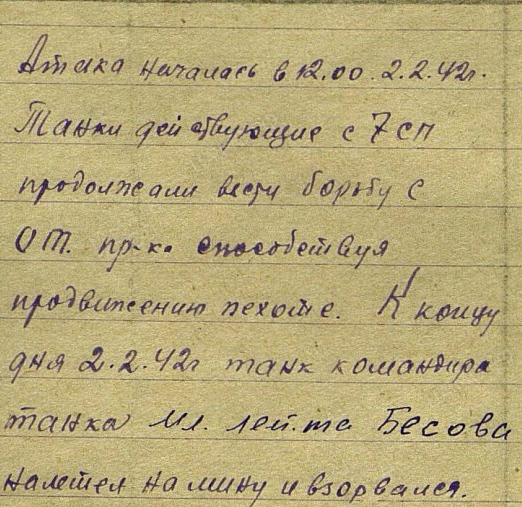 Атака началась в 12.00. 2.2.42г.
Танки действующие с 7 сп
продолжали вести борьбу с
ОТ. пр-ка способствуя
продвижению пехоте. К концу
дня 2.2.42г танк командира
танка Мл. лей.та Бесова
налетел на мину и взорвался.